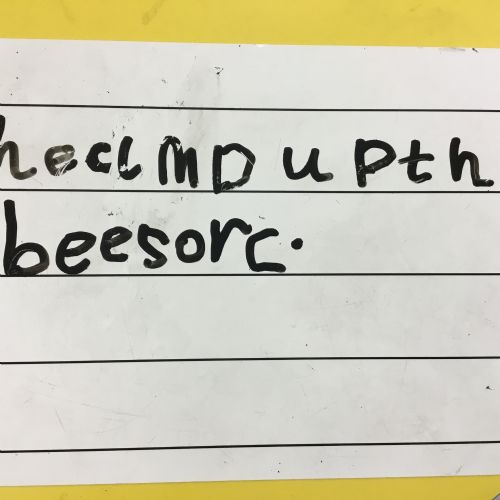 heclmp up th
beesorc.